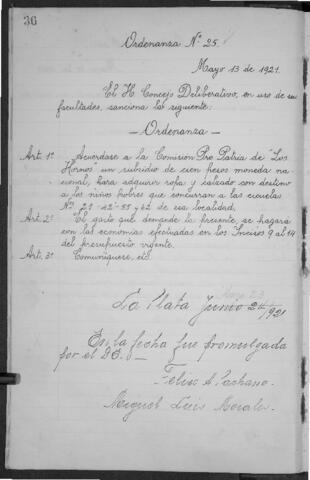 36
Ordenanza Nº 25.
Mayo 13 de 1921.
El H. Concejo Deliberativo, en uso de sus
facultades, sanciona la siguiente:
— Ordenanza —
Art. 1º Acuérdase a la Comisión Pro Patria de "Los
Hornos un subsidio de cien pesos moneda na
cional, para adquirir ropa y calzado con destino
a los niños pobres que concurran a las escuelas
Nº 21-42-55 y 62 de esa localidad.
Art. 2º El gasto que demande la presente, se hará
con las economías efectuadas en los Incisos 9 al 14
del presupuesto vigente.
Art. 3º Comuníquese, etc.
La Plata Junio 24/921
En la fecha fue promulgada
por el D.E. —
Felix A Pachano
Miguel Luis Morales